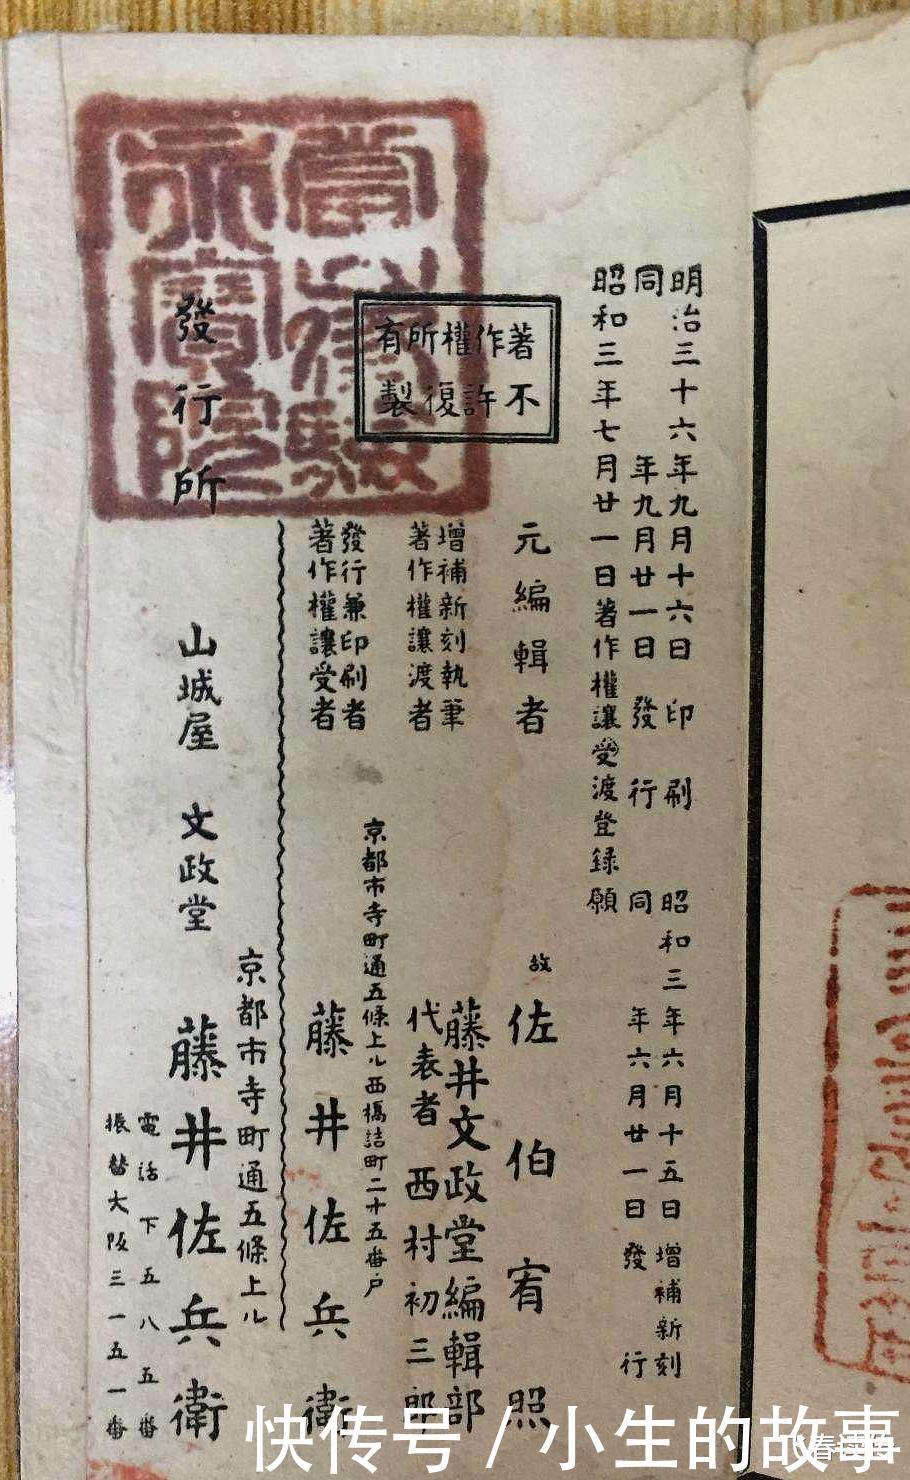 明治三十六年九月十六日印刷
昭和三年六月十五日增補新刻
同年九月廿一日發行
同年六月廿一日發行
昭和三年七月廿一日著作權讓受渡登錄願
著作權所有
不許復製
元編輯者
故佐伯宥照
增補新刻執筆
著作權讓渡者
藤井文政堂編輯部
代表者西村初三郎
發行兼印刷者
著作權讓受者
京都市寺町通五條上ル西橋詰町二十五番戶
藤井佐兵衛
京都市寺町通五條上ル
發行所
山城屋文政堂藤井佐兵衛
電話下五八五番
振替大阪三一五一番
快传号/小生的故事